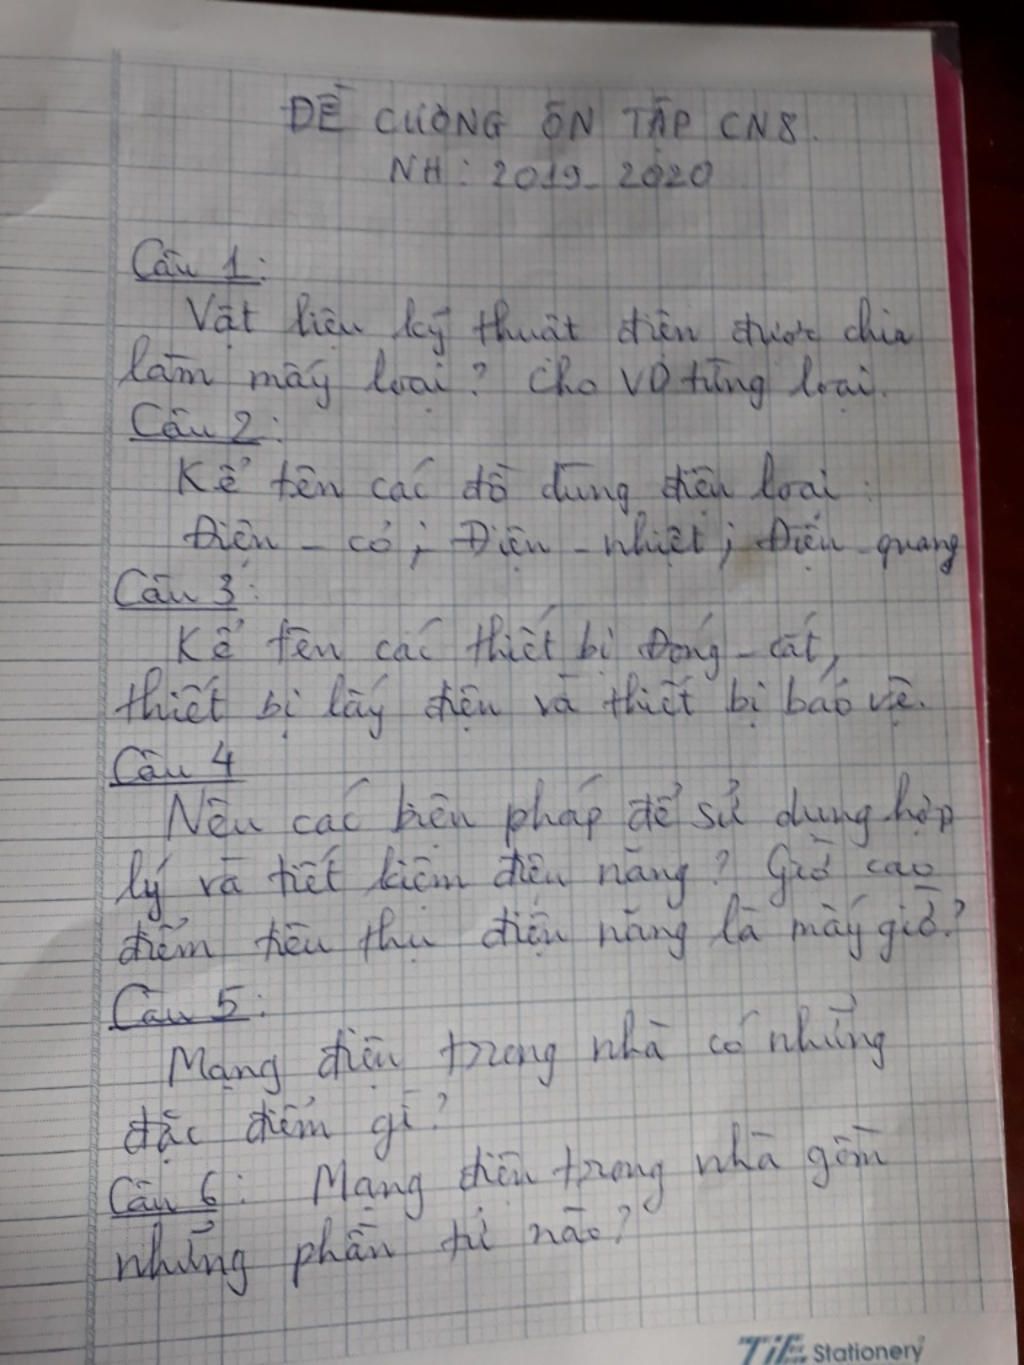 ĐỀ CƯƠNG ÔN TẬP CN8.
NH: 2019-2020
Câu 1:
Vật liệu kỹ thuật điện được chia
làm mấy loại? Cho VD từng loại.
Câu 2:
Kể tên các đồ dùng điện loại:
Điện - cơ; Điện - nhiệt; Điện - quang
Câu 3:
Kể tên các thiết bị Đóng - cắt,
thiết bị lấy điện và thiết bị bảo vệ.
Câu 4
Nêu các biện pháp để sử dụng hợp
lý và tiết kiệm điện năng? Giờ cao
điểm tiêu thụ điện năng là mấy giờ?
Câu 5:
Mạng điện trong nhà có những
đặc điểm gì?
Câu 6: Mạng điện trong nhà gồm
những phần tử nào?
TiE Stationery